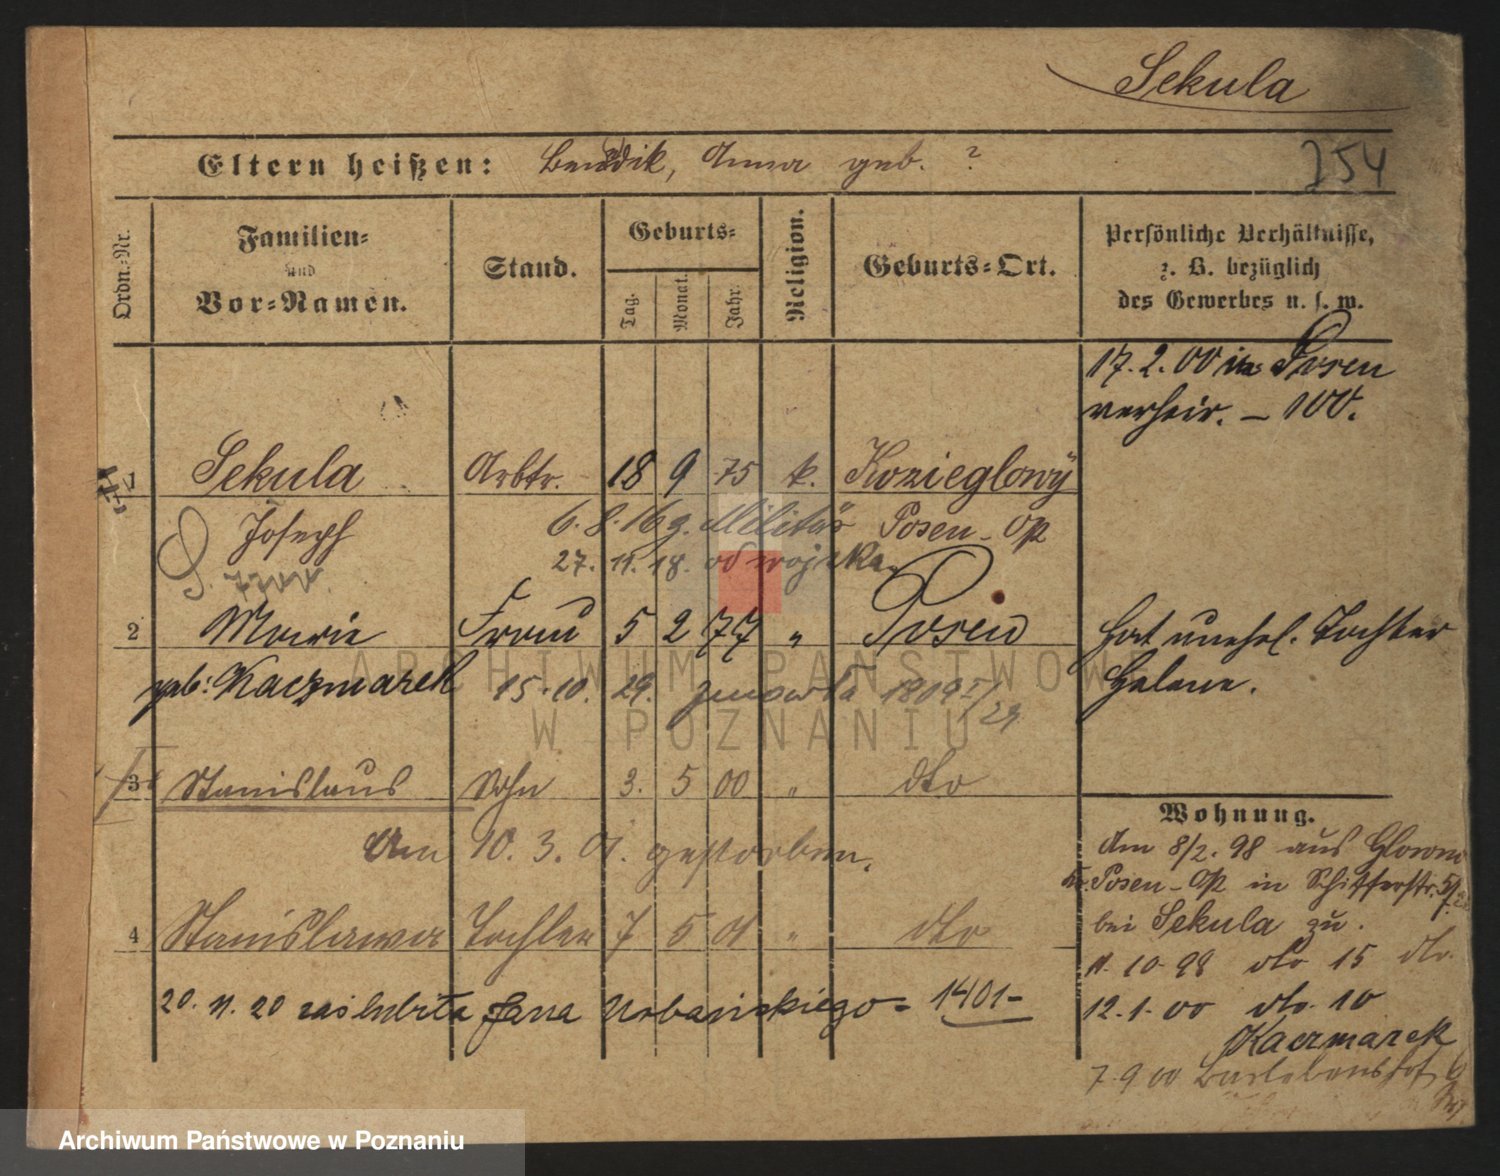 Sekula
Eltern heißen: Benedik, Anna geb. ?
254
Ordn.-Nr.
Familien- und Vor-Namen.
Stand.
Geburts-
Tag. Monat. Jahr.
Religion.
Geburts-Ort.
Persönliche Verhältnisse,
z. B. bezüglich
des Gewerbes u. s. w.
17.2.00 in Posen
verheir. - 100.
1 Sekula Arbtr. 18 9 75 k. Kozieglowÿ
Joseph 6.8.16 z. Militär Posen-Op
27. 11. 18. od wojska.
2 Marie Frau 5 2 77 " Posen
geb: Kaczmarek 15.10.29. zmarła 1909 I/29
Hat unehl. Tochter
Helene.
3 Stanislaus Sohn 3. 5 00 " dto
Am 10.3.01. gestorben.
4 Stanislawa Tochter 7 5 01 " dto
20.11.20 zaślubiła Jana Urbańskiego = 1401-
Wohnung.
Am 8/2.98 aus Glowno
Kr. Posen-Op in Schifferstr. 5/
bei Sekula zu.
11.10.98 dto 15 dto.
12.1.00 dto. 10
Kaczmarek
7.9.00
ARCHIWUM PAŃSTWOWE
W POZNANIU
Archiwum Państwowe w Poznaniu